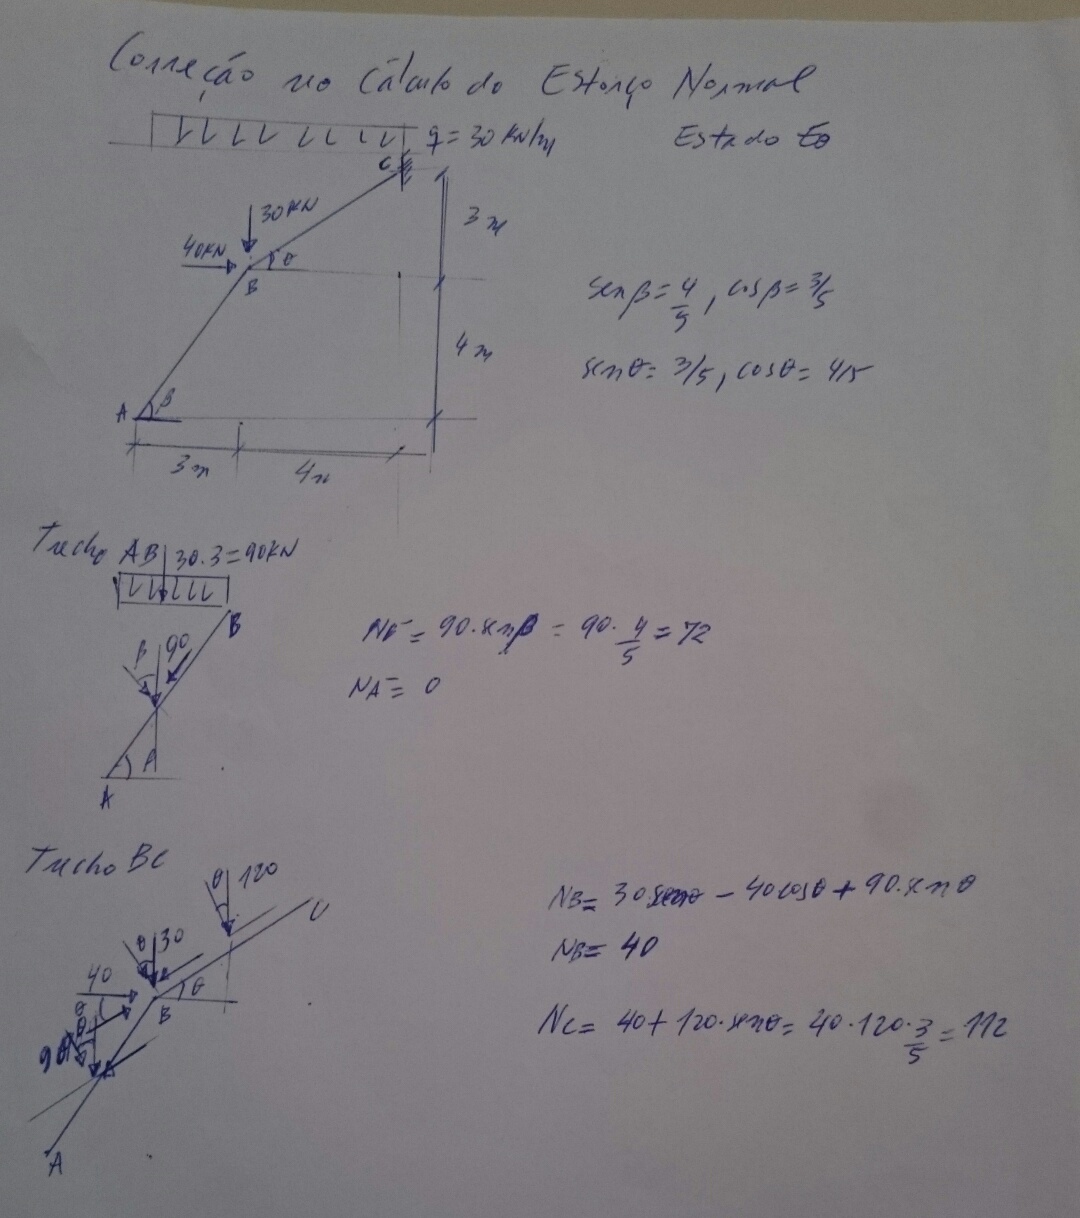 Correção no Cálculo do Esforço Normal
q = 30 KN/m
Estado E0
C
30KN
3 m
40KN
θ
B
sen β = 4/5, cos β = 3/5
4 m
sen θ = 3/5, cos θ = 4/5
A β
3 m 4 m
Trecho AB 30.3 = 90KN
B
β 90
NB = 90.sen β = 90. 4/5 = 72
NA = 0
A
Trecho BC
θ 120
C
θ 30
NB = 30 senθ - 40 cosθ + 90.senθ
NB = 40
40
θ
B
θ
90
NC = 40 + 120.senθ = 40.120.3/5 = 112
A